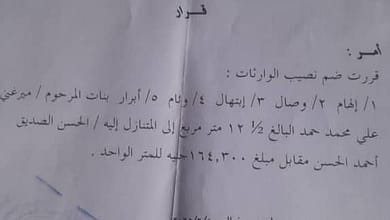 قرار
أمر :
قررت ضم نصيب الوارثات :
١/ إلهام ٢/ وصال ٣/ إبتهال ٤/ وئام ٥/ أبرار بنات المرحوم / ميرغني
علي محمد حمد البالغ ½ ١٢ متر مربع إلى المتنازل إليه / الحسن الصديق
أحمد الحسن مقابل مبلغ ١٦٤,٣٠٠جنيه للمتر الواحد .